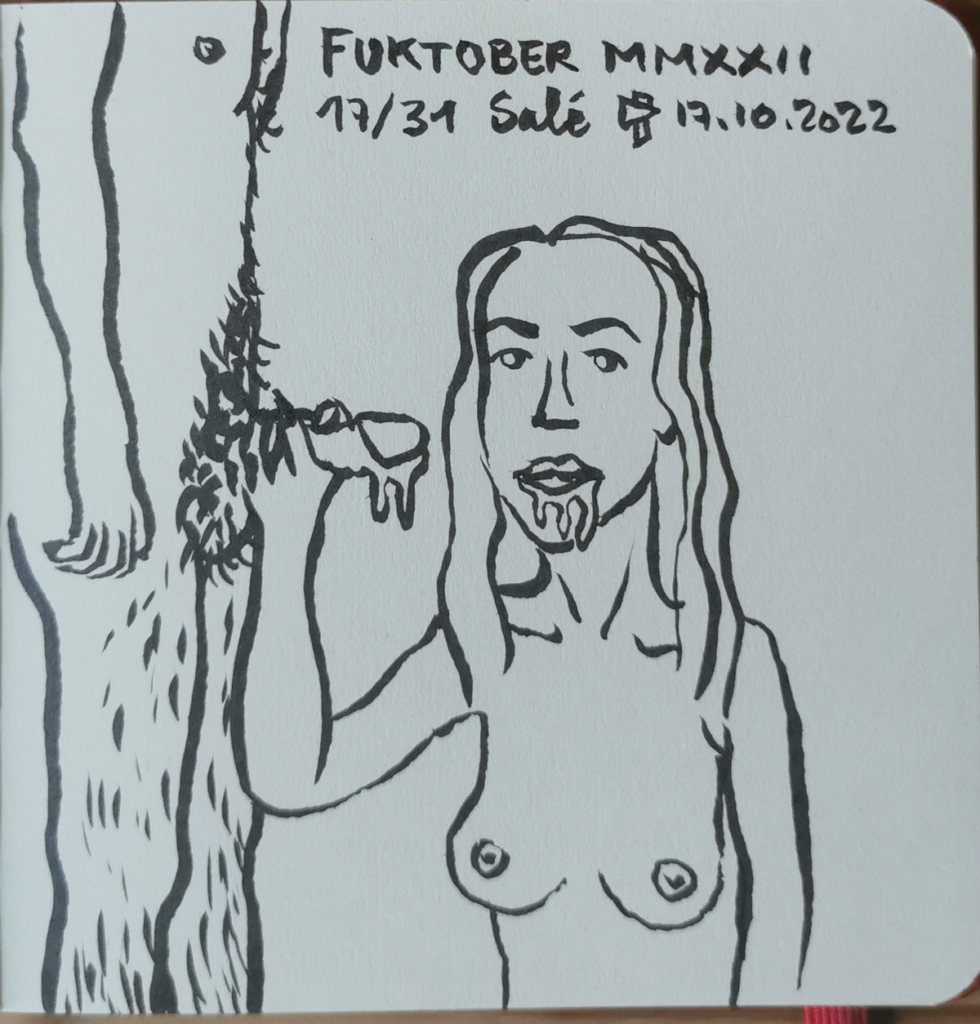 FUKTOBER MMXXII
17/31 Salé 17.10.2022